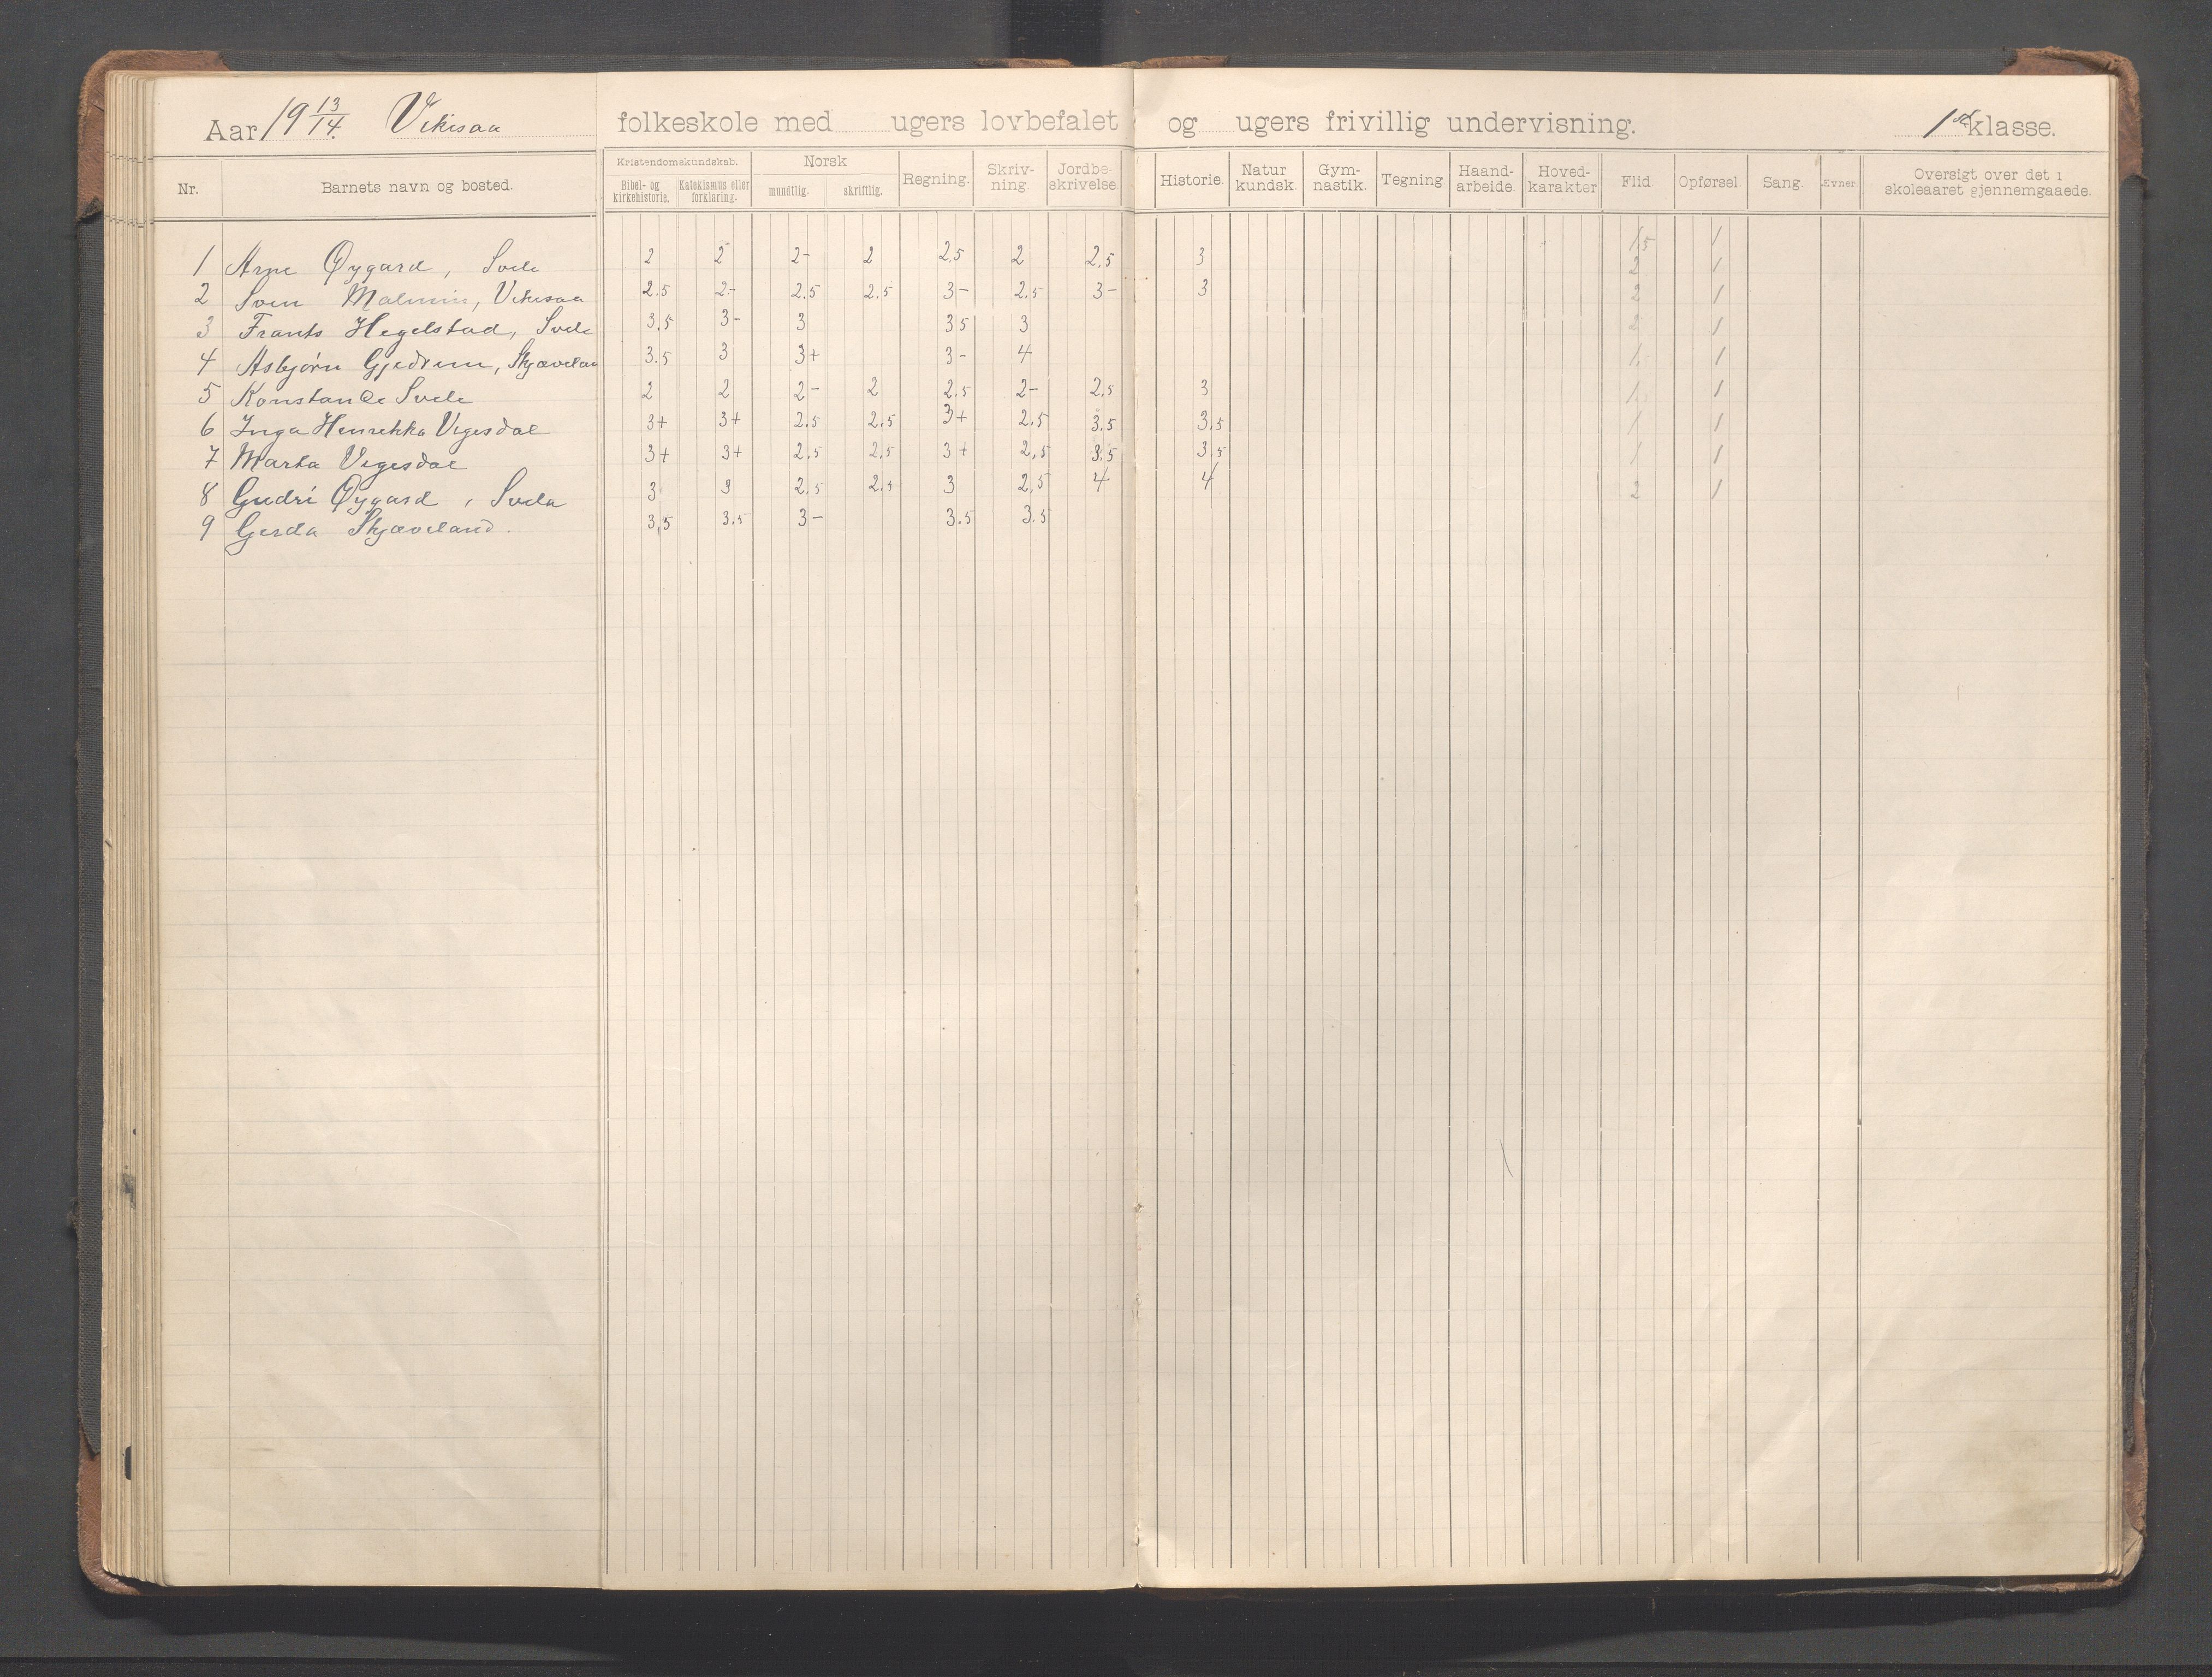 Aar 19 13/14. Vikesaa folkeskole med ugers lovbefalet og ugers frivillig undervisning. 1ste klasse.
Nr. Barnets navn og bosted. Kristendomskundskab. Bibel- og kirkehistorie. Katekismus eller forklaring. Norsk mundtlig. skriftlig. Regning. Skriv-ning. Jordbe-skrivelse. Historie. Natur kundsk. Gym-nastik. Tegning Haand-arbeide. Hoved-karakter Flid. Opførsel. Sang. Evner. Oversigt over det i skoleaaret gjennemgaaede.
1 Arne Øygard, Svele 2 2 2- 2 2,5 2 2,5 3 1,5 1
2 Sven Malmin, Vikesaa 2.5 2- 2.5 2,5 3- 2,5 3- 3 2 1
3 Frants Hegelstad, Svele 3,5 3- 3 35 3 2 1
4 Asbjørn Gjedrem, Skjævelan 3.5 3 3+ 3- 4 2 1
5 Konstanse Svele 2 2 2- 2 2,5 2- 2,5 3 1 1
6 Inga Henrekka Vegesdal 3+ 3+ 2.5 2,5 3+ 2,5 3.5 3,5 1 1
7 Marta Vegesdal 3+ 3+ 2,5 2,5 3+ 2,5 3.5 3,5 1 1
8 Gudri Øygard, Svela 3 3 2.5 2.5 3 2,5 4 4 1 1
9 Gerda Skjæveland. 3,5 3.5 3- 3.5 3.5 2 1